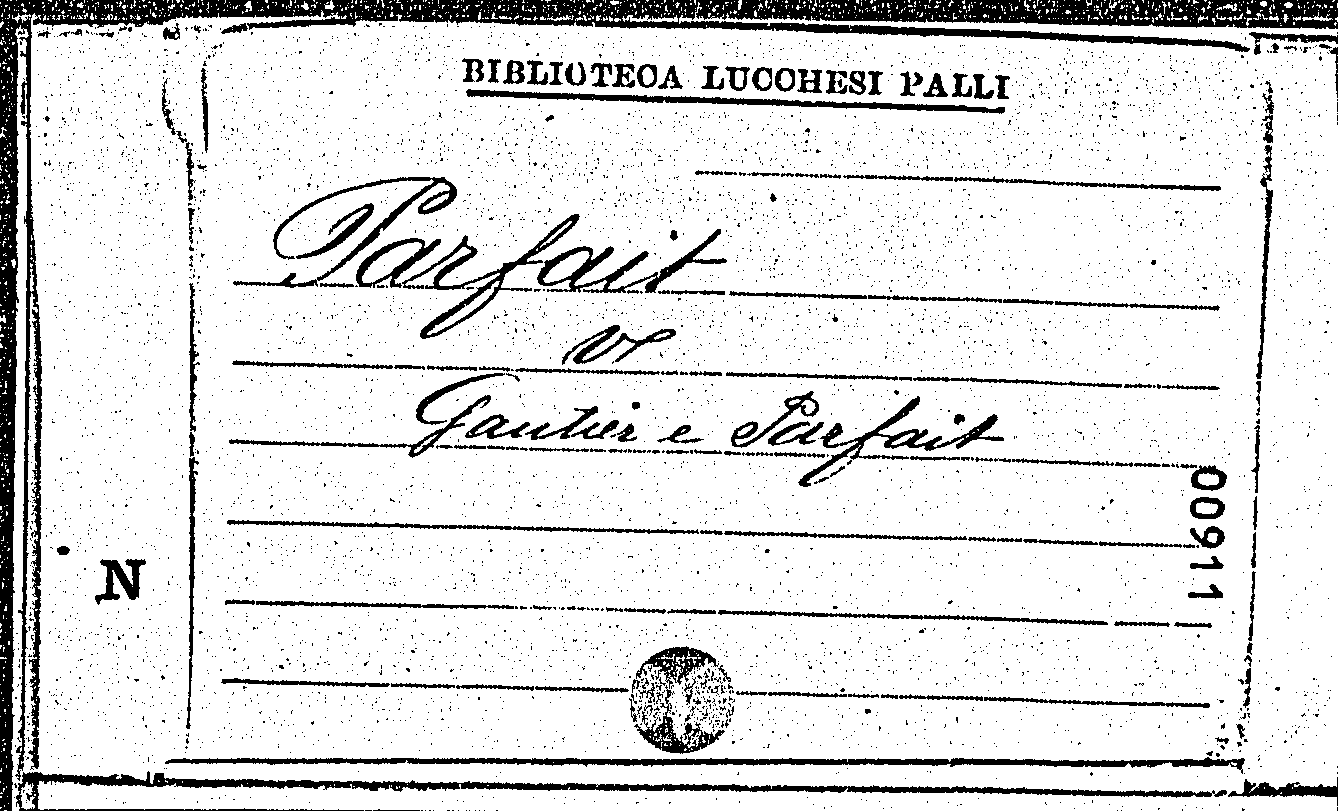 BIBLIOTECA LUCCHESI PALLI
Parfait
v
Gautier e Parfait
00911
N